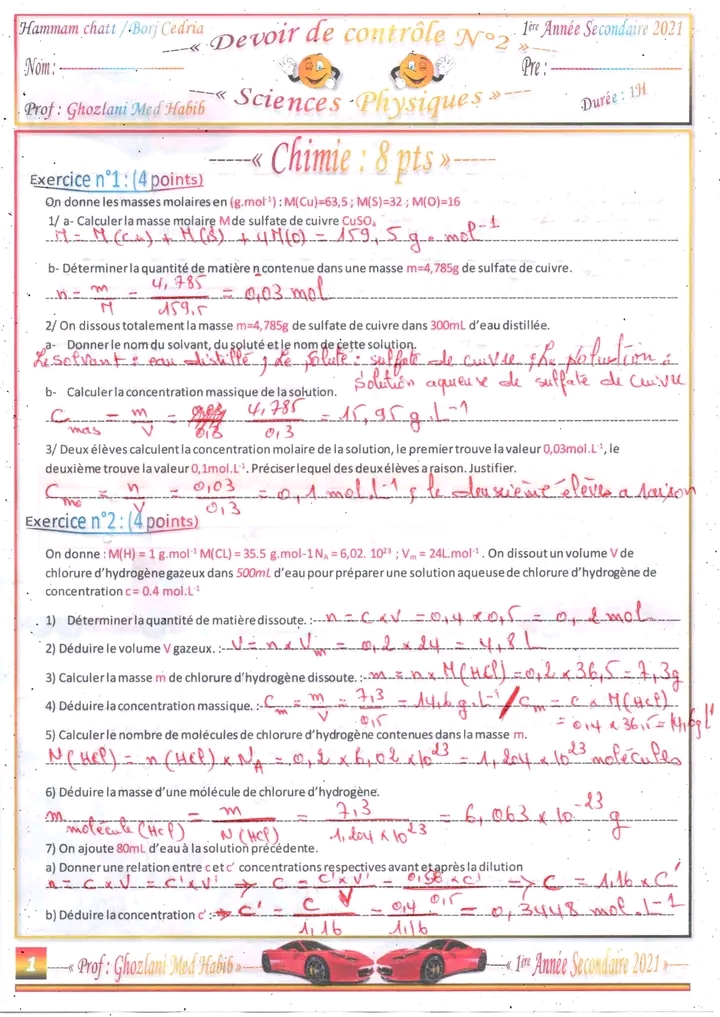 Hammam chatt / Borj Cedria
---« Devoir de contrôle N°2 »---
1ère Année Secondaire 2021
Nom :
Pre :
Prof : Ghozlani Med Habib
---« Sciences Physiques »---
Durée : 1H
-----« Chimie : 8 pts »-----
Exercice n°1 : (4 points)
On donne les masses molaires en (g.mol⁻¹) : M(Cu)=63,5 ; M(S)=32 ; M(O)=16
1/ a- Calculer la masse molaire M de sulfate de cuivre CuSO₄
M = M(Cu) + M(S) + 4M(O) = 159,5 g.mol⁻¹
b- Déterminer la quantité de matière n contenue dans une masse m=4,785g de sulfate de cuivre.
n = m/M = 4,785/159,5 = 0,03 mol
2/ On dissous totalement la masse m=4,785g de sulfate de cuivre dans 300mL d'eau distillée.
a- Donner le nom du solvant, du soluté et le nom de cette solution.
Le solvant : eau distillé ; Le soluté : sulfate de cuivre ; La solution :
solution aqueuse de sulfate de cuivre
b- Calculer la concentration massique de la solution.
C mas = m/V = 4,785/0,3 = 15,95 g.L⁻¹
3/ Deux élèves calculent la concentration molaire de la solution, le premier trouve la valeur 0,03mol.L⁻¹, le
deuxième trouve la valeur 0,1mol.L⁻¹. Préciser lequel des deux élèves a raison. Justifier.
C mo = n/V = 0,03/0,3 = 0,1 mol.L⁻¹ ; le deuxième élève a raison
Exercice n°2 : (4 points)
On donne : M(H) = 1 g.mol⁻¹ M(CL) = 35.5 g.mol-1 N_A = 6,02. 10²³ ; V_m = 24L.mol⁻¹ . On dissout un volume V de
chlorure d'hydrogène gazeux dans 500mL d'eau pour préparer une solution aqueuse de chlorure d'hydrogène de
concentration c= 0.4 mol.L⁻¹
1) Déterminer la quantité de matière dissoute. :-- n = C x V = 0,4 x 0,5 = 0,2 mol
2) Déduire le volume V gazeux. :- V = n x V_m = 0,2 x 24 = 4,8 L
3) Calculer la masse m de chlorure d'hydrogène dissoute. :- m = n x M(HCl) = 0,2 x 36,5 = 7,3g
4) Déduire la concentration massique. :- C_m = m/V = 7,3/0,5 = 14,6 g.L⁻¹ / C_m = C x M(HCl)
= 0,4 x 36,5 = 14,6 g L⁻¹
5) Calculer le nombre de molécules de chlorure d'hydrogène contenues dans la masse m.
N(HCl) = n(HCl) x N_A = 0,2 x 6,02 x 10²³ = 1,204 x 10²³ molécules
6) Déduire la masse d'une molécule de chlorure d'hydrogène.
m molécule (HCl) = m/N(HCl) = 7,3/1,204 x 10²³ = 6,063 x 10⁻²³ g
7) On ajoute 80mL d'eau à la solution précédente.
a) Donner une relation entre c et c' concentrations respectives avant et après la dilution
n = C x V = C' x V' ⇒ C = C' x V'/V = 0,58 x C'/0,5 ⇒ C = 1,16 x C'
b) Déduire la concentration c' :- ⇒ C' = C/1,16 = 0,4/1,16 = 0,3448 mol.L⁻¹
1
---« Prof : Ghozlani Med Habib »---
---« 1ère Année Secondaire 2021 »---